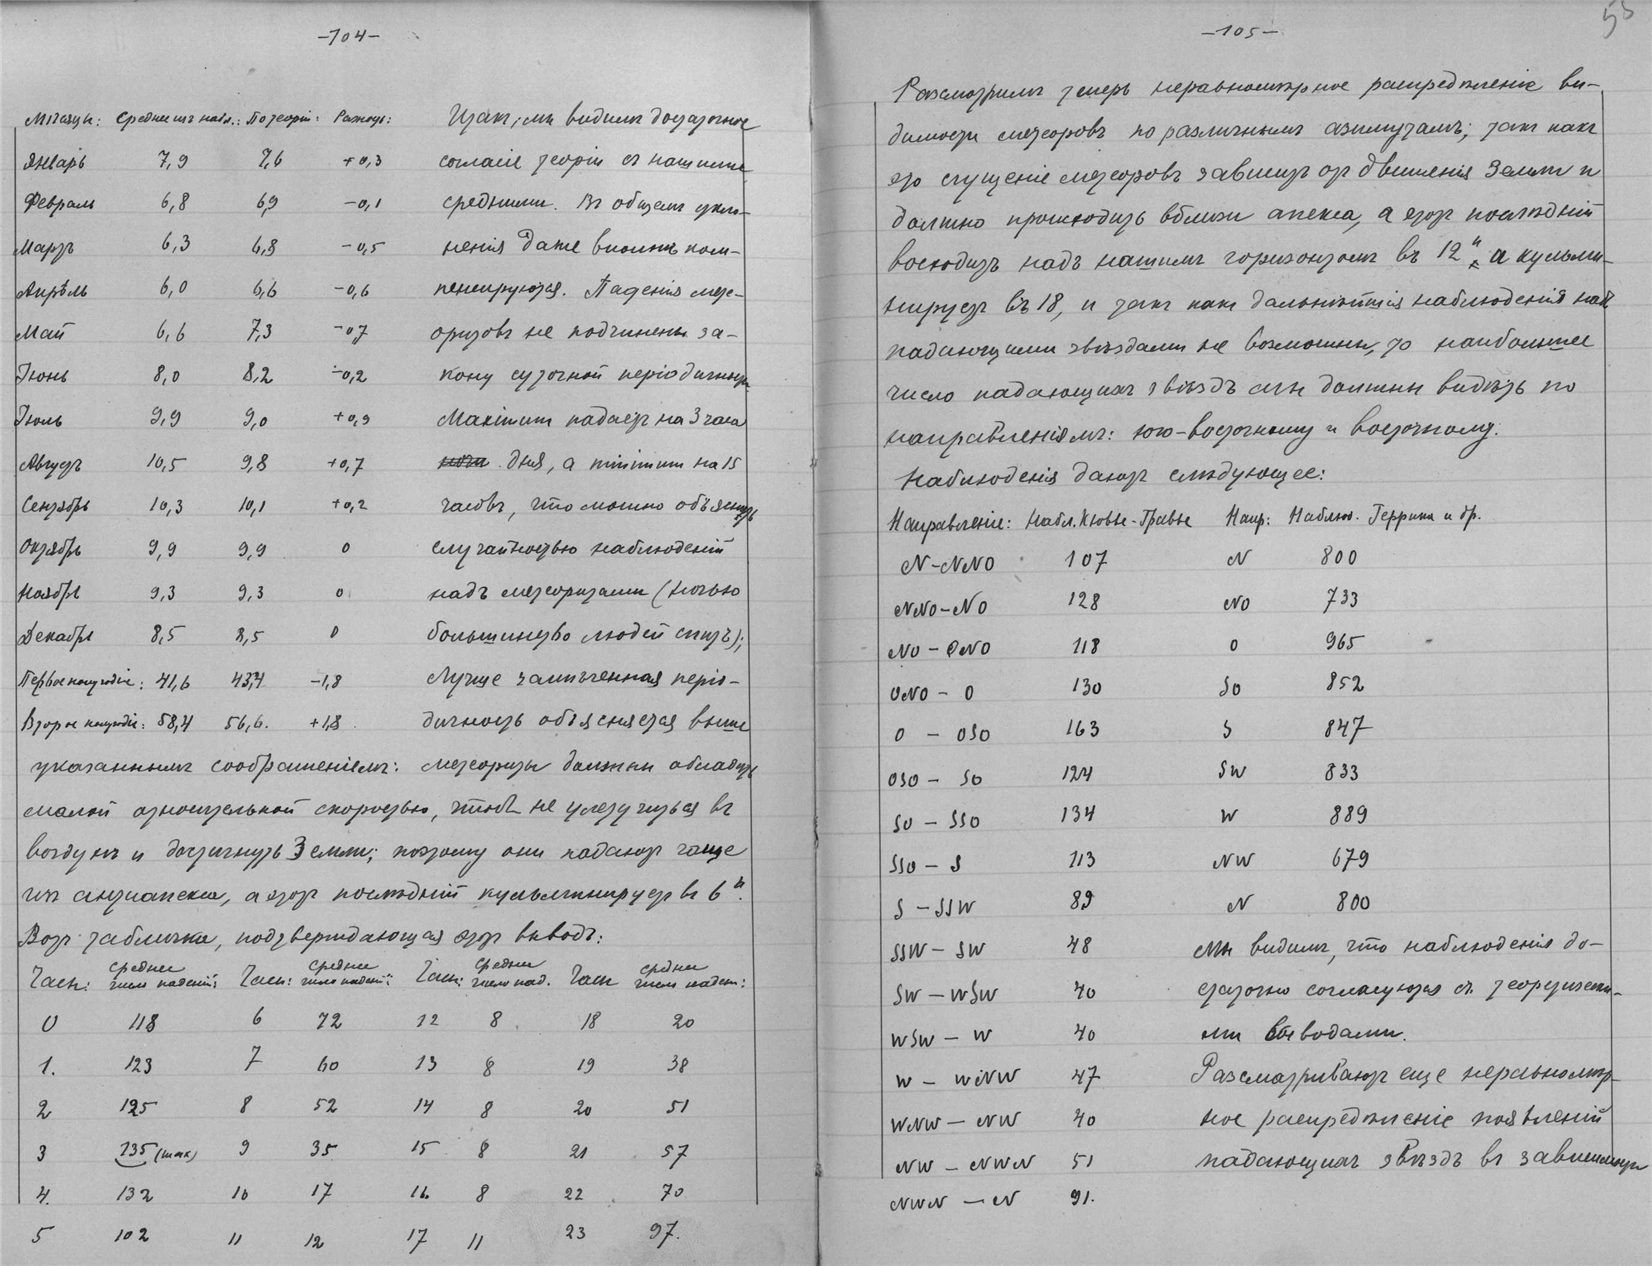 -104-
Мѣсяцы: Среднее изъ набл.: По теоріи: Разность: Итак, мы видимъ достаточное
Январь 7,9 7,6 +0,3 согласіе теоріи съ нашими
Февраль 6,8 6,9 -0,1 средними. Въ общемъ укло-
Мартъ 6,3 6,8 -0,5 ненія даже вполнѣ ком-
Апрѣль 6,0 6,6 -0,6 пенсируются. Паденія мете-
Май 6,6 7,3 -0,7 оритовъ не подчинены за-
Іюнь 8,0 8,2 -0,2 кону суточной періодичности
Іюль 9,9 9,0 +0,9 Maximum падаетъ на 3 часа
Августъ 10,5 9,8 +0,7 дня, а minimum на 15
Сентябрь 10,3 10,1 +0,2 часовъ, что можно объяснить
Октябрь 9,9 9,9 0 случайностью наблюденій
Ноябрь 9,3 9,3 0 надъ метеоритами (ночью
Декабрь 8,5 8,5 0 большинство людей спитъ);
Первое полугодіе: 41,6 43,4 -1,8 Лучше замѣченная періо-
Второе полугодіе: 58,4 56,6. +1,8 дичность объясняется выше
указаннымъ соображеніемъ: метеориты должны обладать
малой относительной скоростью, чтобъ не улетучиться въ
воздухѣ и достигнуть Земли; поэтому они падаютъ чаще
изъ антиапекса, а этотъ послѣдній кульминируетъ въ 6ч.
Вотъ табличка, подтверждающая этотъ выводъ:
Часы: Среднее число паденій: Часы: Среднее число паден: Часы: Среднее число пад. Часы среднее число паден:
0 118 6 72 12 8 18 20
1. 123 7 60 13 8 19 38
2 125 8 52 14 8 20 51
3 135 (max) 9 35 15 8 21 57
4. 132 10 17 16 8 22 70
5 102 11 12 17 11 23 97.
-105-
Разсмотримъ теперь неравномѣрное распредѣленіе ви-
димости метеоровъ по различнымъ азимутамъ; такъ какъ
это сгущеніе метеоровъ зависитъ отъ движенія Земли и
должно происходить вблизи апекса, а этотъ послѣдній
восходитъ надъ нашимъ горизонтомъ въ 12ч, а кульми-
нируетъ въ 18, и такъ какъ дальнѣйшія наблюденія надъ
падающими звѣздами не возможны, то наибольшее
число падающихъ звѣздъ мы должны видѣть по
направленіямъ: юго-восточному и восточному.
Наблюденія даютъ слѣдующее:
Направленіе: Набл. Кювье-Гравье Напр: Наблюд. Геррика и др.
N-NNO 107 N 800
NNO-NO 128 NO 733
NO - ONO 118 O 965
ONO - O 130 SO 852
O - OSO 163 S 847
OSO - SO 124 SW 833
SO - SSO 134 W 889
SSO - S 113 NW 679
S - SSW 89 N 800
SSW - SW 48 Мы видимъ, что наблюденія до-
SW - WSW 40 статочно согласуются съ теоретически-
WSW - W 40 ми выводами.
W - WNW 47 Разсматриваютъ еще неравномѣр-
WNW - NW 40 ное распредѣленіе появленій
NW - NWN 51 падающихъ звѣздъ въ зависимости
NWN - N 91.